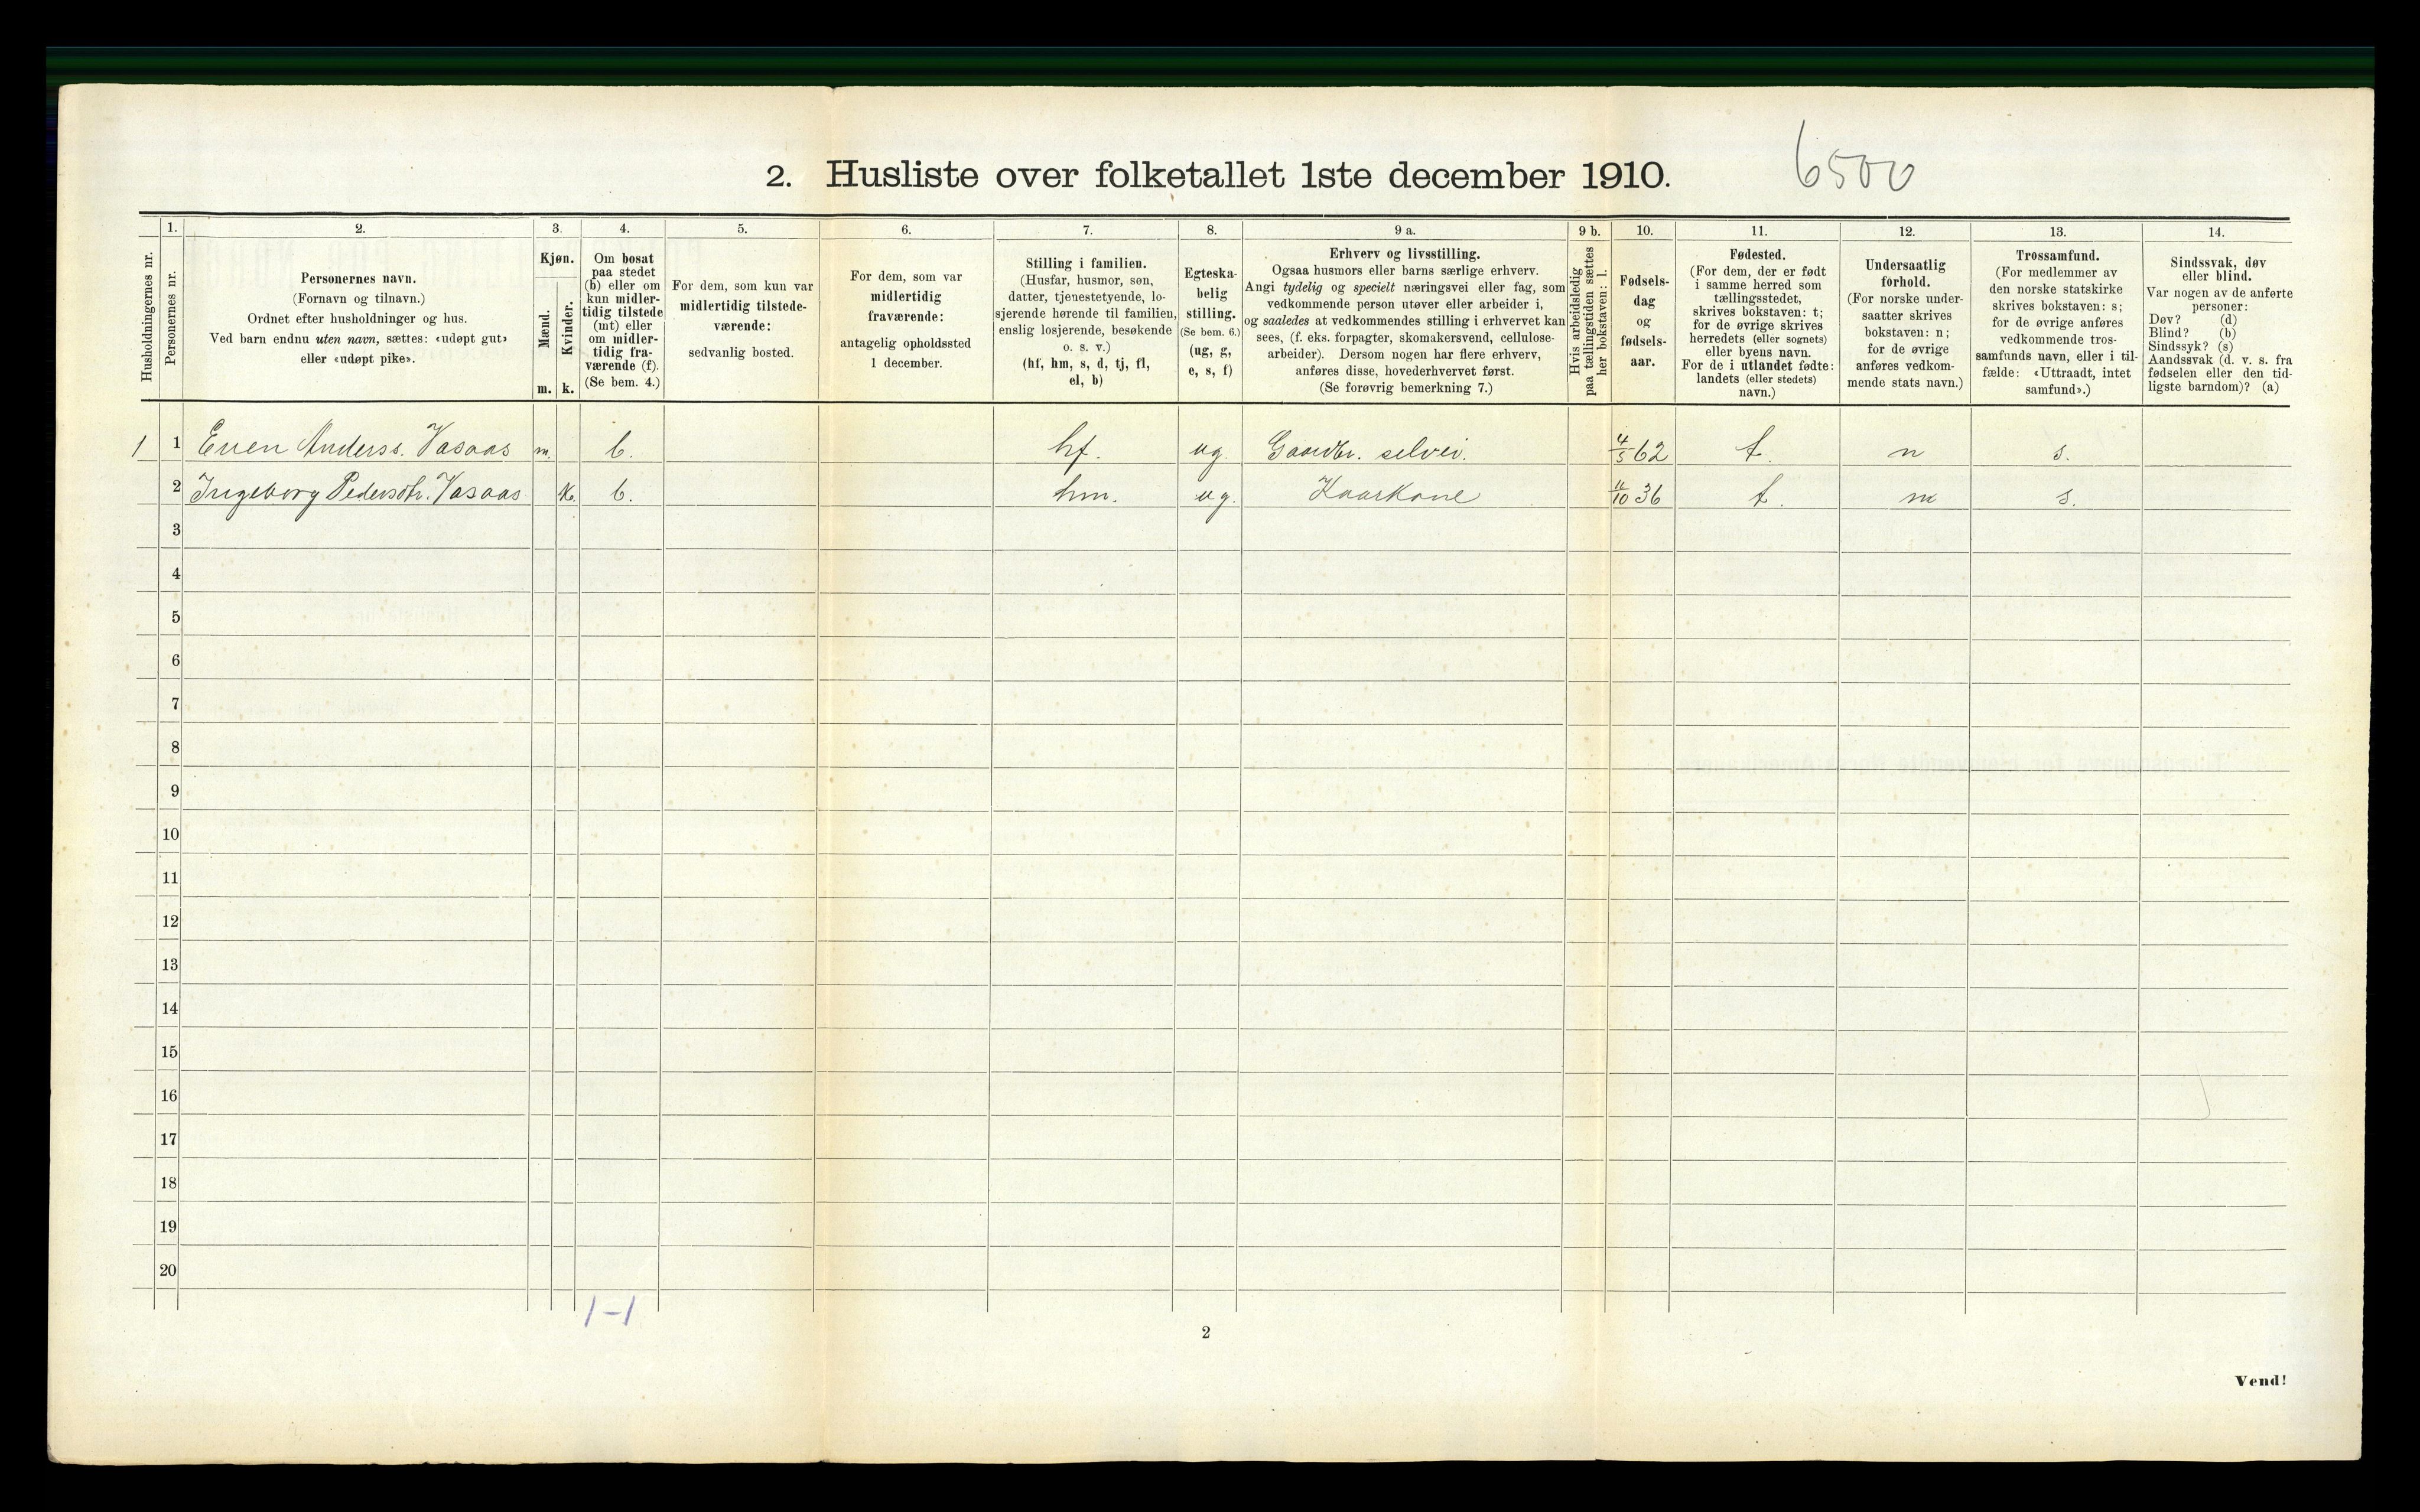 2. Husliste over folketallet 1ste december 1910.
6500
Husholdningernes nr.
1.
Personernes nr.
2.
Personernes navn.
(Fornavn og tilnavn.)
Ordnet efter husholdninger og hus.
Ved barn endnu uten navn, sættes: «udøpt gut»
eller «udøpt pike».
3.
Kjøn.
Mænd.
m.
Kvinder.
k.
4.
Om bosat
paa stedet
(b) eller om
kun midler-
tidig tilstede
(mt) eller
om midler-
tidig fra-
værende (f).
(Se bem. 4.)
5.
For dem, som kun var
midlertidig tilstede-
værende:
sedvanlig bosted.
6.
For dem, som var
midlertidig
fraværende:
antagelig opholdssted
1 december.
7.
Stilling i familien.
(Husfar, husmor, søn,
datter, tjenestetyende, lo-
sjerende hørende til familien,
enslig losjerende, besøkende
o. s. v.)
(hf, hm, s, d, tj, fl,
el, b)
8.
Egteska-
belig
stilling.
(Se bem. 6.)
(ug, g,
e, s, f)
9 a.
Erhverv og livsstilling.
Ogsaa husmors eller barns særlige erhverv.
Angi tydelig og specielt næringsvei eller fag, som
vedkommende person utøver eller arbeider i,
og saaledes at vedkommendes stilling i erhvervet kan
sees, (f. eks. forpagter, skomakersvend, cellulose-
arbeider). Dersom nogen har flere erhverv,
anføres disse, hovederhvervet først.
(Se forøvrig bemerkning 7.)
9 b.
Hvis arbeidsledig
paa tællingstiden sættes
her bokstaven: l.
10.
Fødsels-
dag
og
fødsels-
aar.
11.
Fødested.
(For dem, der er født
i samme herred som
tællingsstedet,
skrives bokstaven: t;
for de øvrige skrives
herredets (eller sognets)
eller byens navn.
For de i utlandet fødte:
landets (eller stedets)
navn.)
12.
Undersaatlig
forhold.
(For norske under-
saatter skrives
bokstaven: n;
for de øvrige
anføres vedkom-
mende stats navn.)
13.
Trossamfund.
(For medlemmer av
den norske statskirke
skrives bokstaven: s;
for de øvrige anføres
vedkommende tros-
samfunds navn, eller i til-
fælde: «Uttraadt, intet
samfund».)
14.
Sindssvak, døv
eller blind.
Var nogen av de anførte
personer:
Døv? (d)
Blind? (b)
Sindssyk? (s)
Aandssvak (d. v. s. fra
fødselen eller den tid-
ligste barndom)? (a)
1 1 Even Anderss. Vasaas m. b. hf. ug. Gaardbr. selvei. 4/5 62 t. n s.
2 Ingeborg Pedersdtr. Vasaas k. b. hm. ug. Kaarkone 11/10 36 t. n s.
3
4
5
6
7
8
9
10
11
12
13
14
15
16
17
18
19
20
1-1
2
Vend!